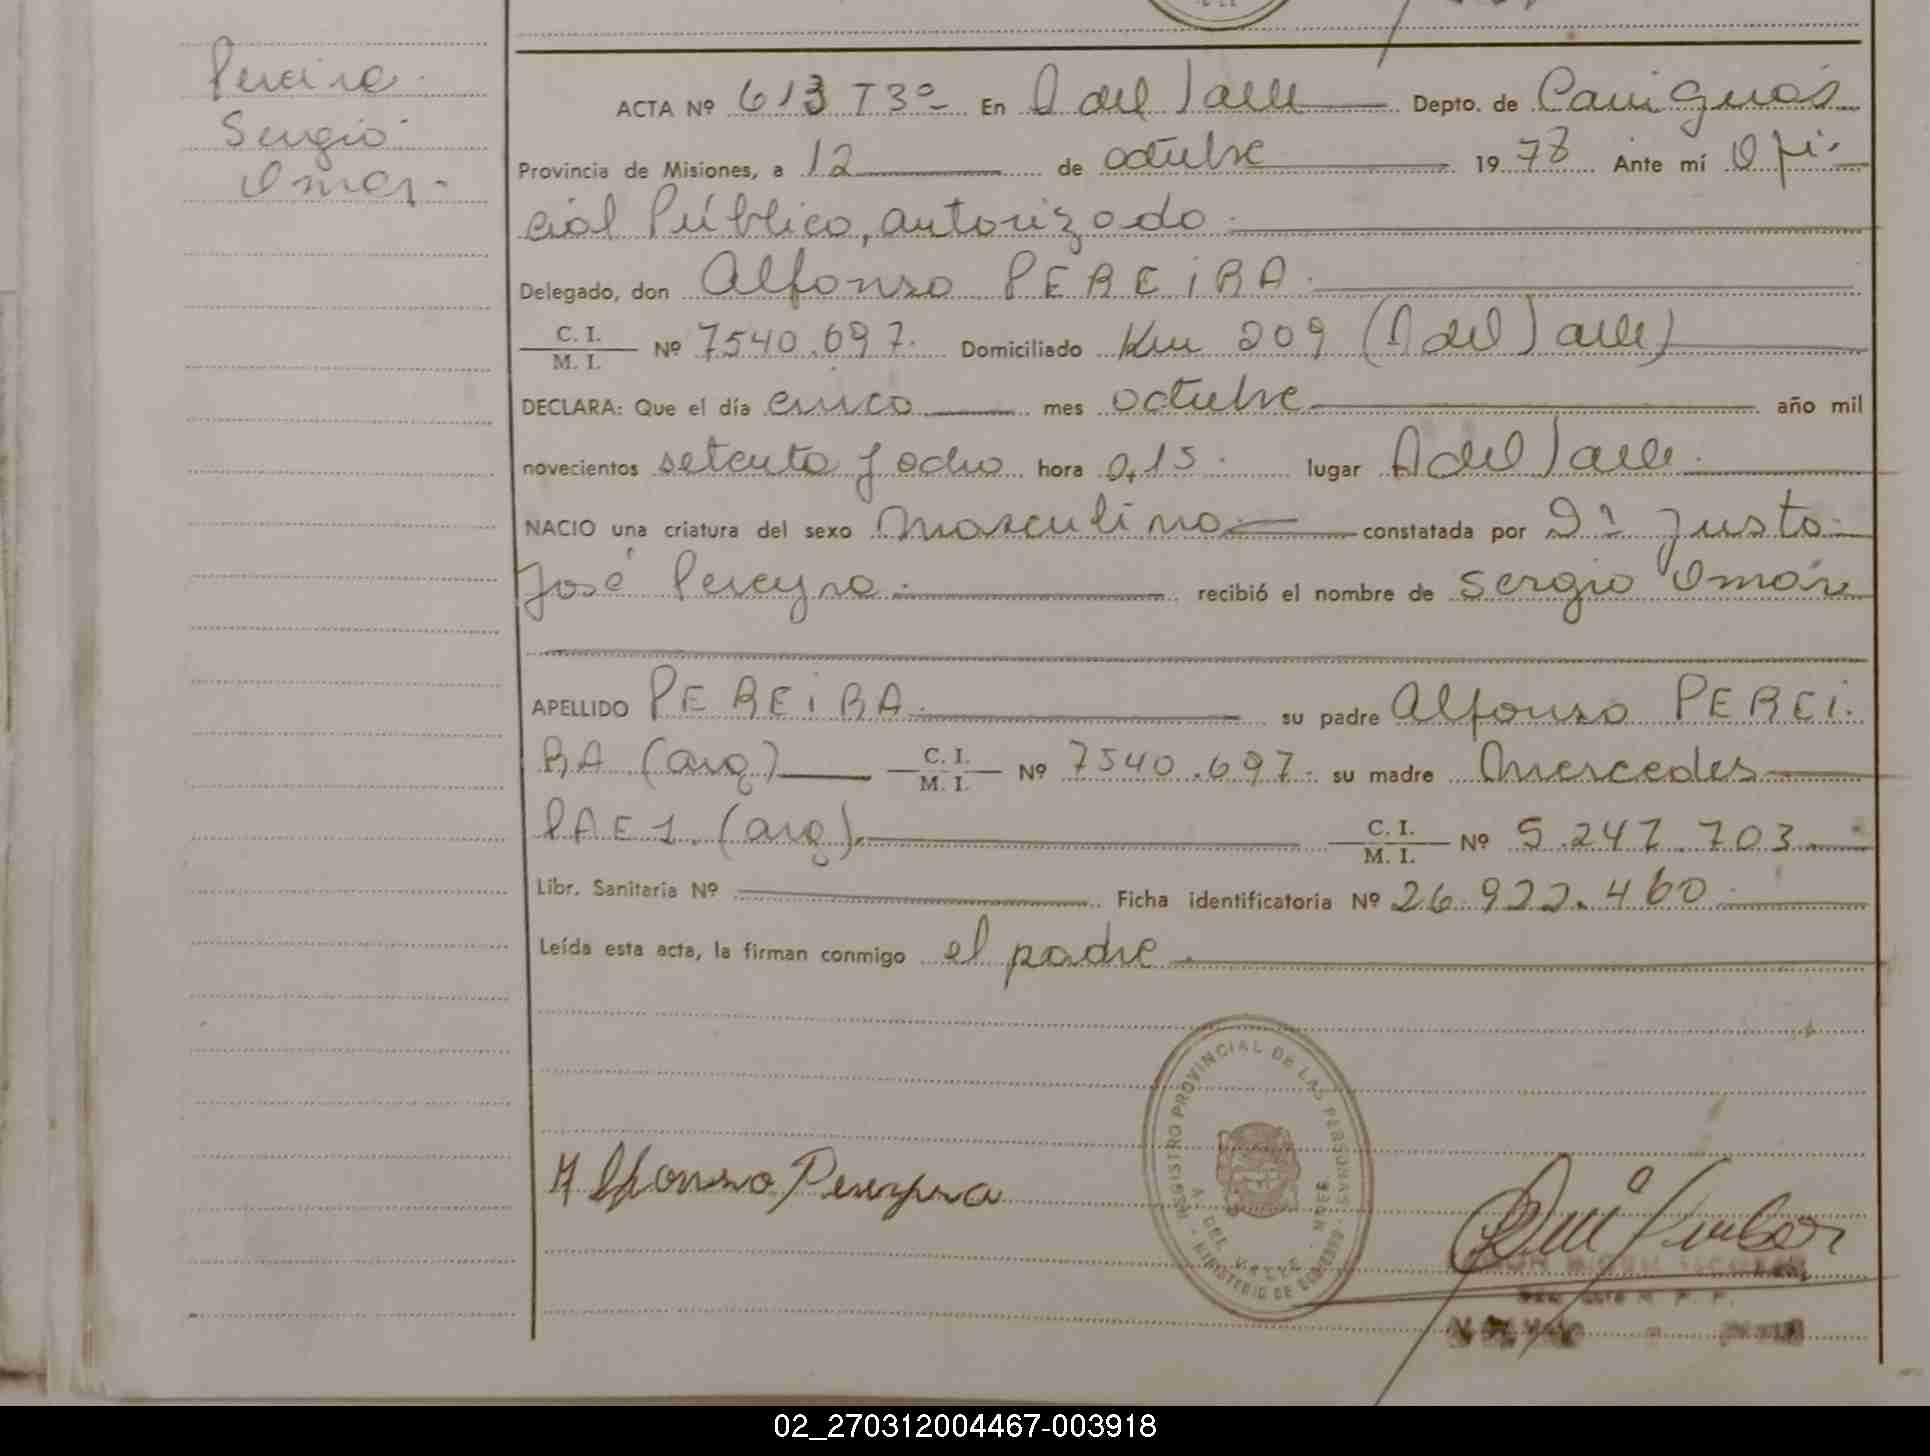 Pereira
Sergio
Omar.-
ACTA Nº 613 T3º En A del Valle Depto. de Cainguás
Provincia de Misiones, a 12 de octubre 1978 Ante mí Ofi-
cial Público, autorizado.
Delegado, don Alfonso PEREiRA.
C. I.
M. I. Nº 7540.697. Domiciliado Km 209 (A del Valle)
DECLARA: Que el día cinco mes octubre año mil
novecientos setenta y ocho hora 0,15. lugar A del Valle.
NACIO una criatura del sexo masculino constatada por Dr Justo
José Pereyra. recibió el nombre de Sergio Omar
APELLIDO PEREiRA. su padre Alfonso PEREi-
RA (arg) C. I. M. I. Nº 7540.697. su madre Mercedes
PAEZ. (arg). C. I. M. I. Nº 5.247.703.
Libr. Sanitaria Nº Ficha identificatoria Nº 26.922.460
Leída esta acta, la firman conmigo el padre.
REGISTRO PROVINCIAL DE LAS PERSONAS
A. DEL VALLE
MINISTERIO DE GOBIERNO
Alfonso Pereyra
02_270312004467-003918